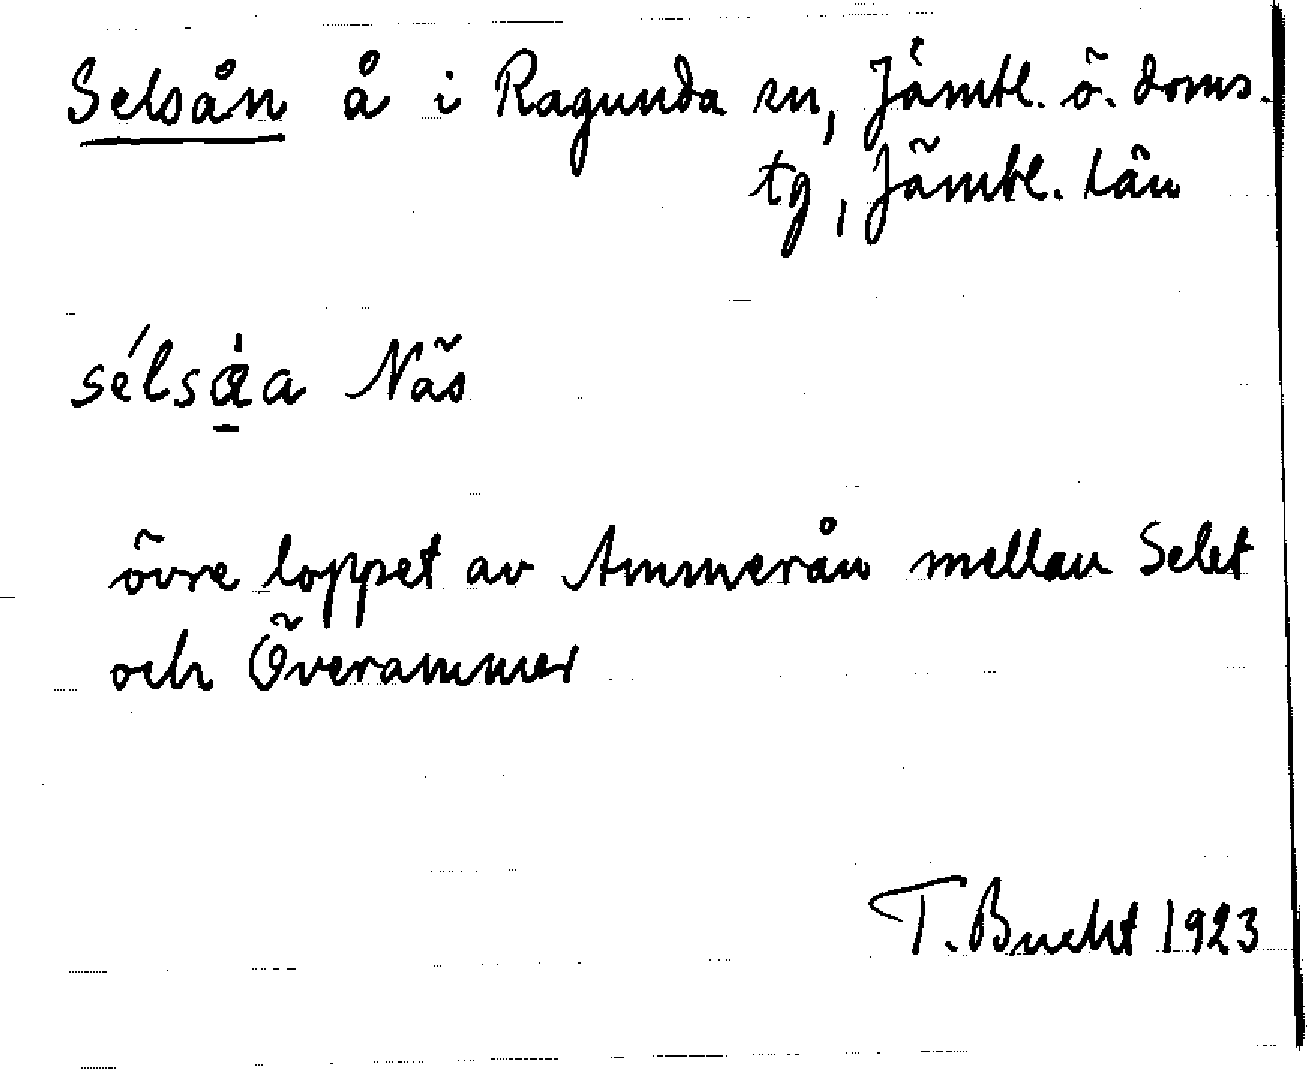 Selsån å i Ragunda sn, Jämtl. ö. doms.
tg, Jämtl. län
Näs
övre loppet av Ammerån mellan Selet
och Överammer
T. Bucht 1923